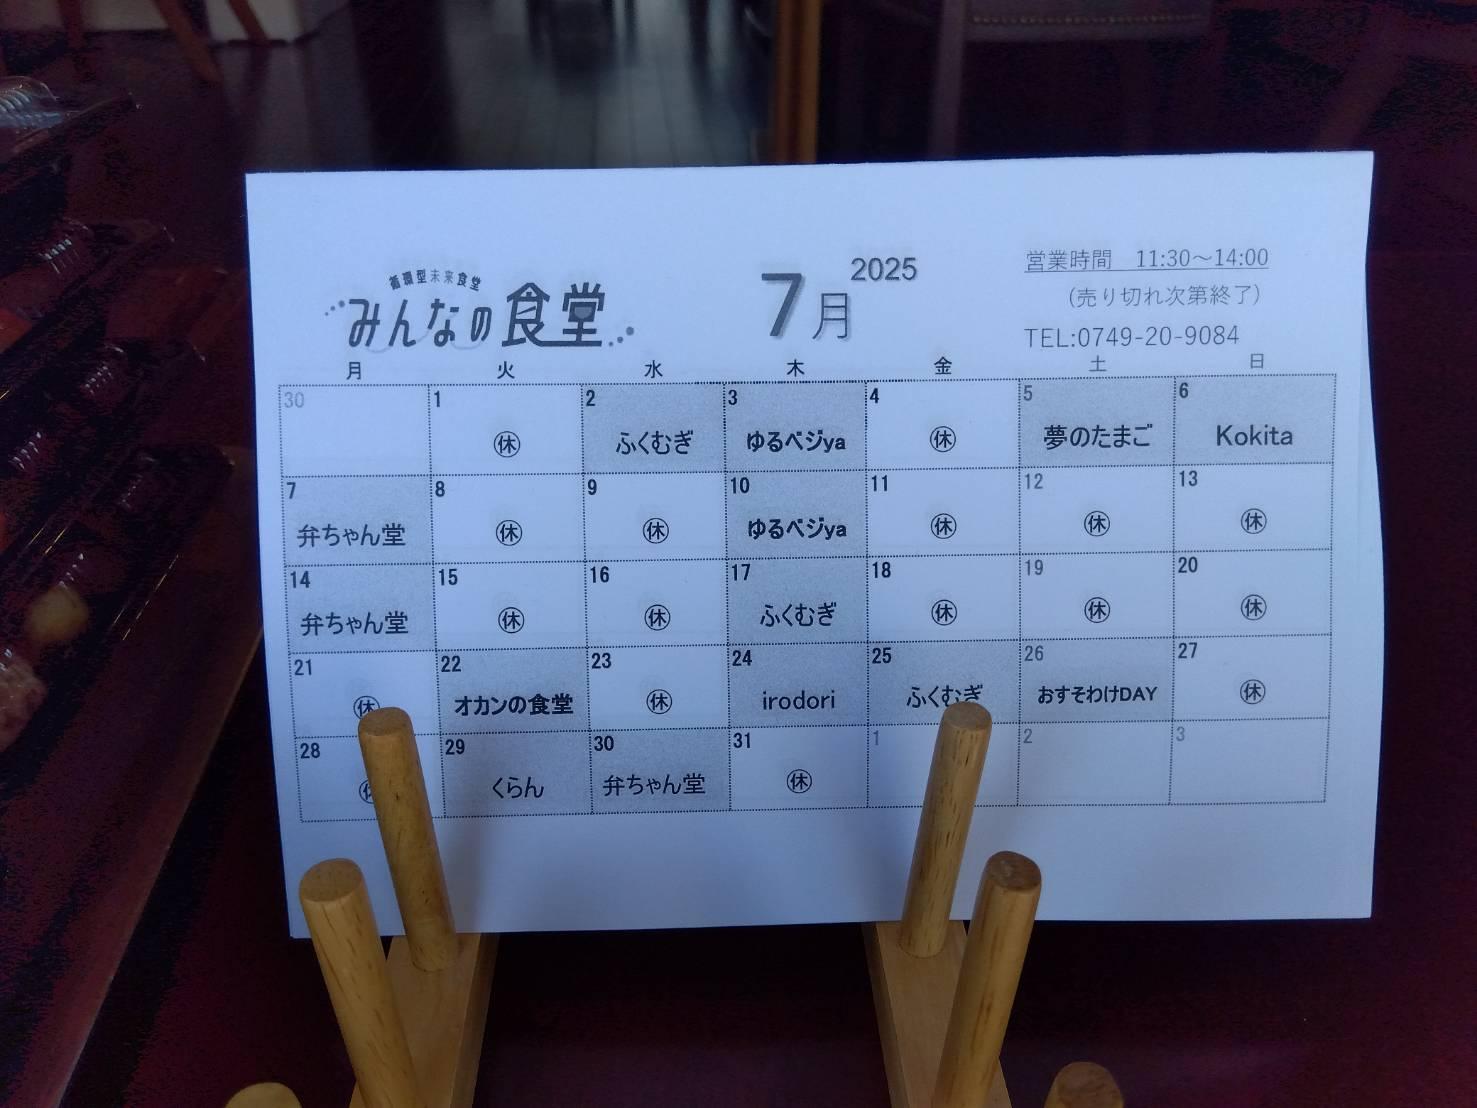 循環型未来食堂
みんなの食堂
7月 2025
営業時間 11:30～14:00
(売り切れ次第終了)
TEL:0749-20-9084
月 火 水 木 金 土 日
30 1 2 3 4 5 6
㊡ ふくむぎ ゆるベジya ㊡ 夢のたまご Kokita
7 8 9 10 11 12 13
弁ちゃん堂 ㊡ ㊡ ゆるベジya ㊡ ㊡ ㊡
14 15 16 17 18 19 20
弁ちゃん堂 ㊡ ㊡ ふくむぎ ㊡ ㊡ ㊡
21 22 23 24 25 26 27
㊡ オカンの食堂 ㊡ irodori ふくむぎ おすそわけDAY ㊡
28 29 30 31 1 2 3
㊡ くらん 弁ちゃん堂 ㊡